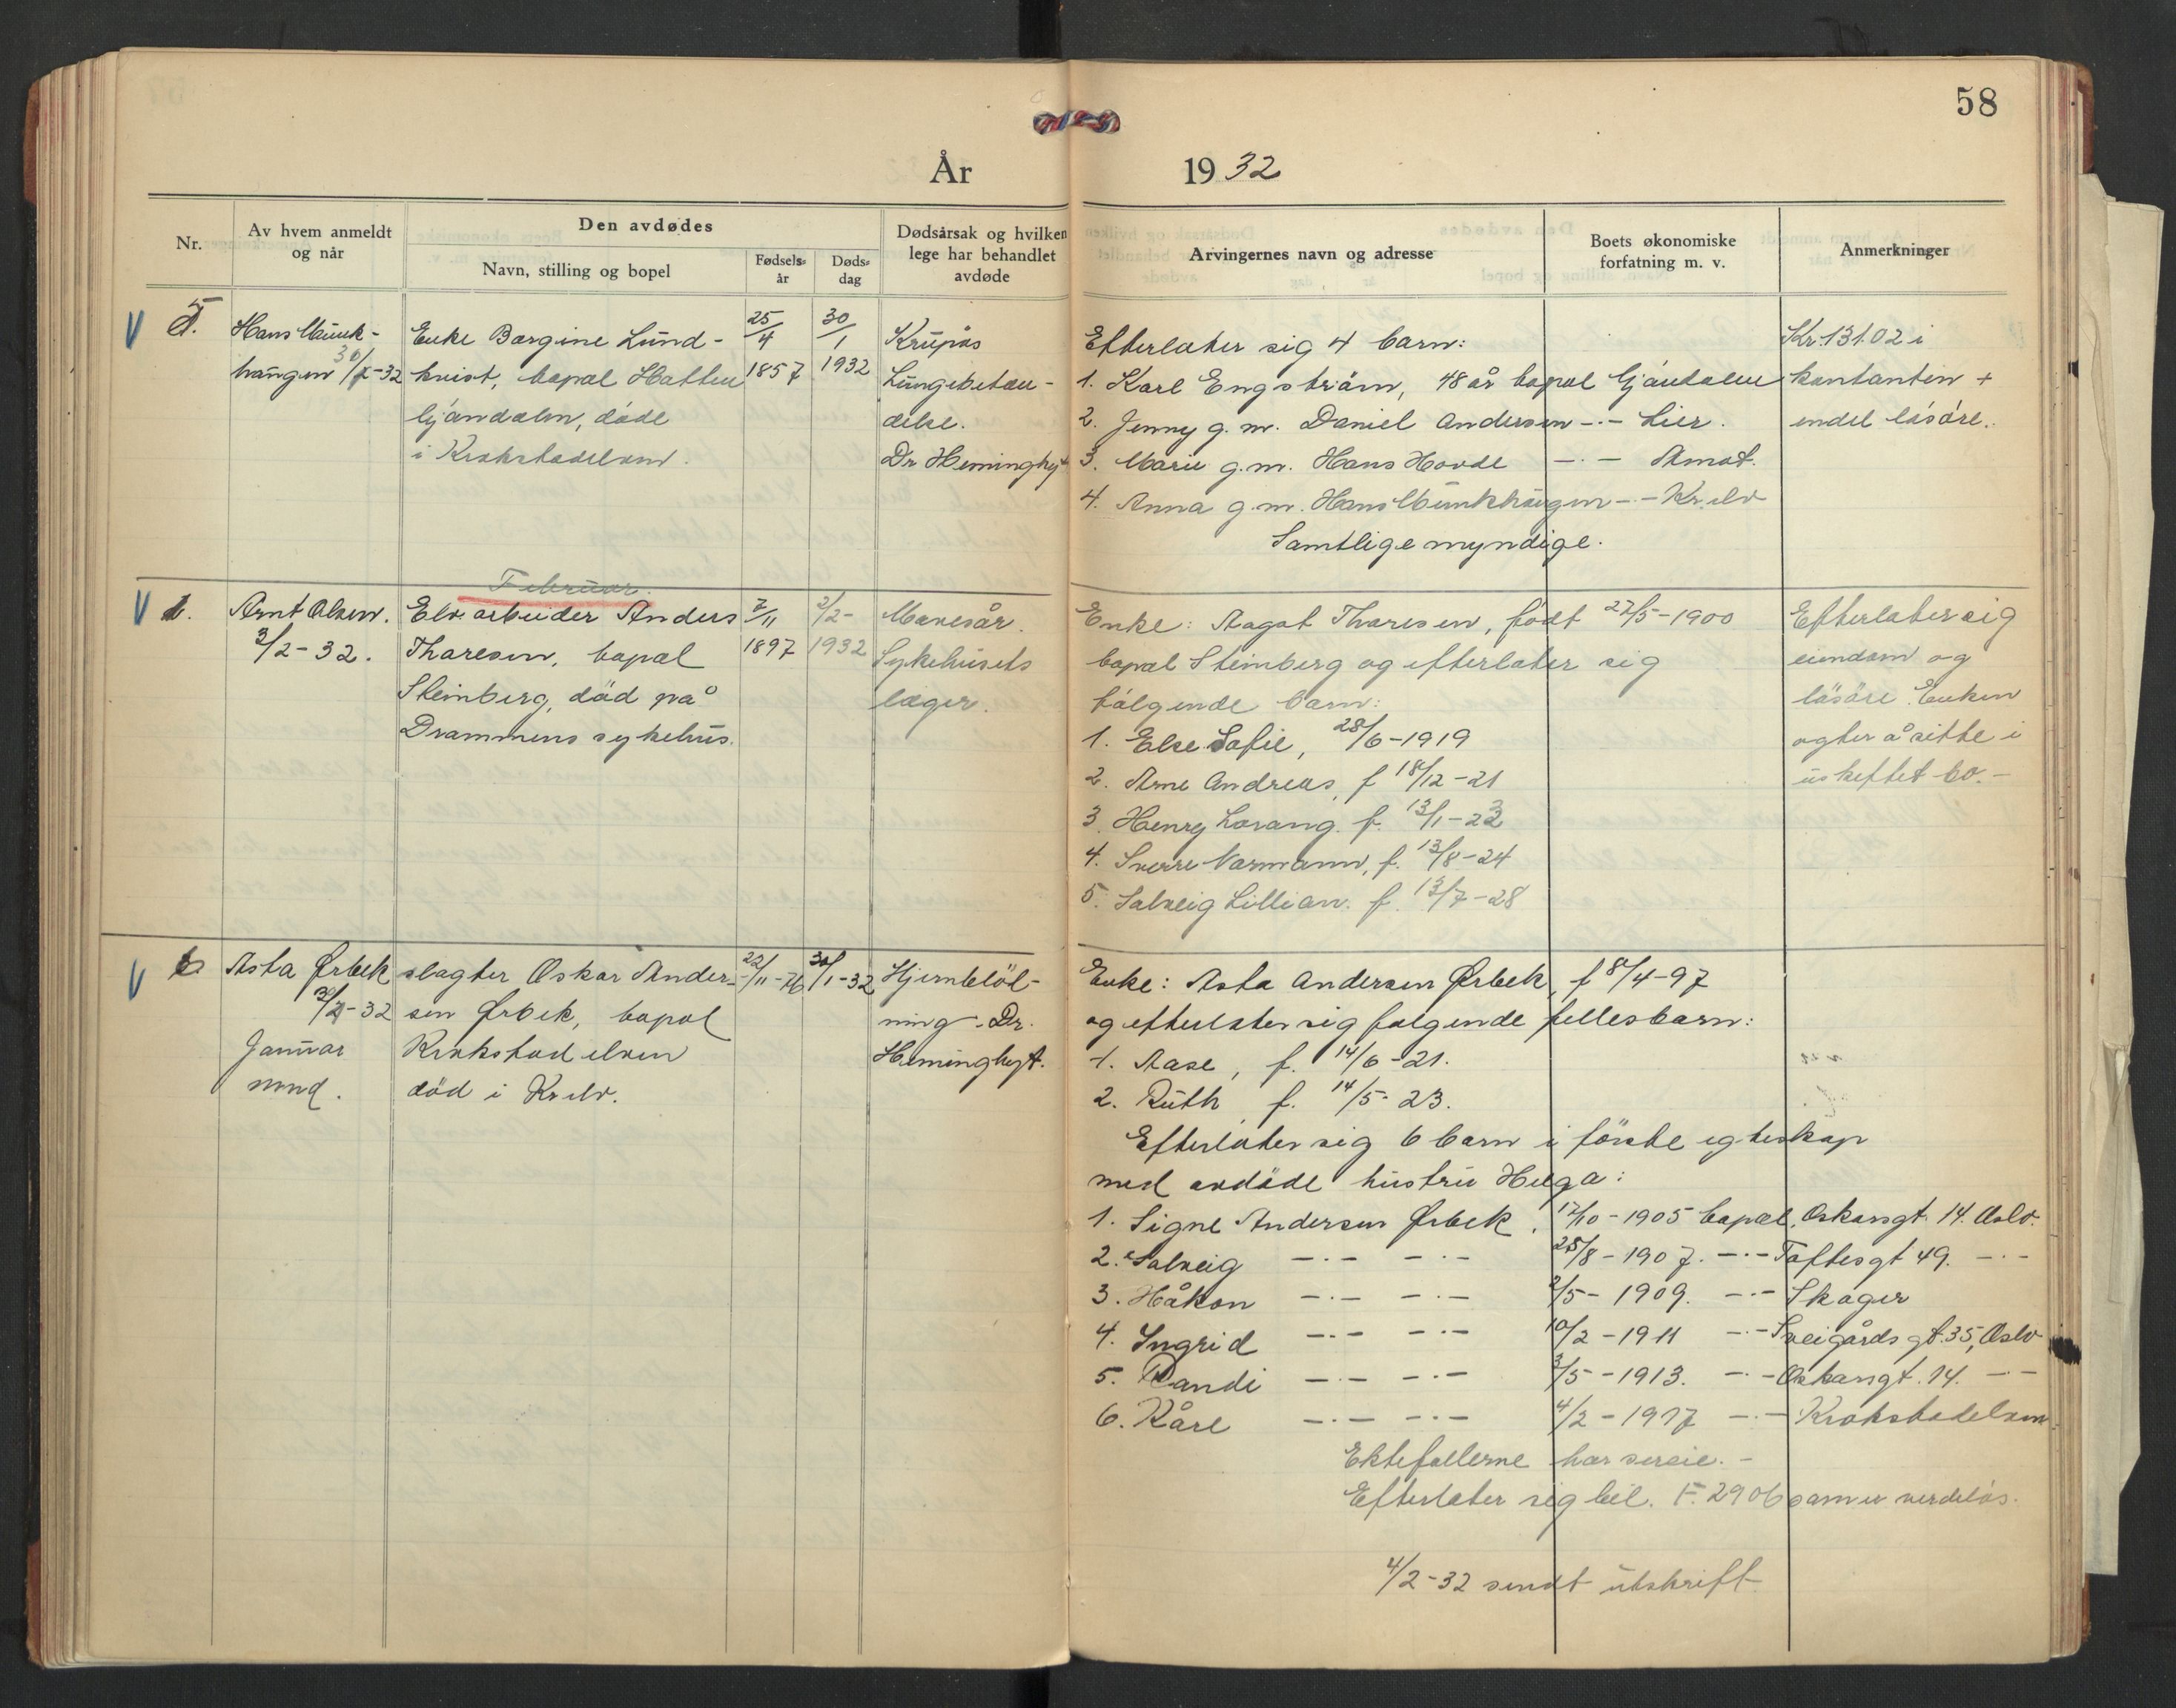 58
År 1932
Nr.
Av hvem anmeldt
og når
Den avdødes
Navn, stilling og bopel
Fødsels-
år
Døds-
dag
Dødsårsak og hvilken
lege har behandlet
avdøde
Arvingernes navn og adresse
Boets økonomiske
forfatning m. v.
Anmerkninger
5.
Hans Munk-
haugen /2-32
Enke Borgine Lund-
kvist, bopæl Hatten
Gjøndalen, døde
i Krokstadelven.
25/4
1857
30/1
1932
Krupøs
Lungebeten-
delse.
Dr Heminghyt
Efterlater sig 4 barn:
1. Karl Engström, 48 år bopæl Gjøndalen
2. Jenny g. m. Daniel Andersen -.- Lier.
3. Marie g. m. Hans Hovde -.- Åmot.
4. Anna g. m. Hans Munkhaugen -.- Kr.elv
Samtlige myndige.
Kr. 131.02 i
kontanten +
endel løsøre.
Februar.
Arnt Olsen.
3/2-32.
Elvearbeider Anders
Thoresen, bopæl
Steinberg, död på
Drammens sykehus.
7/11
1897
2/2-
1932
Mavesår.
Sykehusets
læger.
Enke: Aagot Thoresen, født 27/5-1900
bopæl Steinberg og efterlater sig
følgende barn:
1. Else Sofie, 28/6-1919
2. Arne Andreas, f 18/12-21
3. Henry Lorang. f. 13/1-23
4. Sverre Normann, f. 13/8-24
5. Solveig Lillian. f. 13/7-28
Efterlater sig
eiendom og
løsøre. Enken
agter å sitte i
uskiftet bo.-
6
Asta Ørbek
/2-32
Januar
mnd.
slagter Oskar Ander-
sen Ørbek, bopæl
Krokstadelven
död i Kr.elv.
22/11-76
30/1-32
Hjerneblöd-
ning. Dr.
Heminghyt.
Enke: Asta Andersen Ørbek, f 8/4-97
og efterlater sig følgende fellesbarn:
1. Aase, f. 14/6-21.
2. Ruth f. 14/5-23.
Efterlater sig 6 barn i første egteskap
med avdøde hustru Helga:
1. Signe Andersen Ørbek, 17/10-1905 bopæl, Oskarsgt. 14. Oslo.
2. Solveig -.- -.- 25/8-1907. -.- Toftesgt 49. -.-
3. Håkon -.- -.- 2/5-1909. -.- Skoger
4. Ingrid -.- -.- 10/2-1911 -.- Sveigårdsgt. 35, Oslo
5. Randi -.- -.- 3/5-1913. -.- Oskarsgt. 14. -.-
6. Kåre -.- -.- 4/2-1917 -.- Krokstadelven.
Ektefellerne har sereie.-
Efterlater sig bil. F. 2906 som er verdeløs.
4/2-32 sendt utskrift